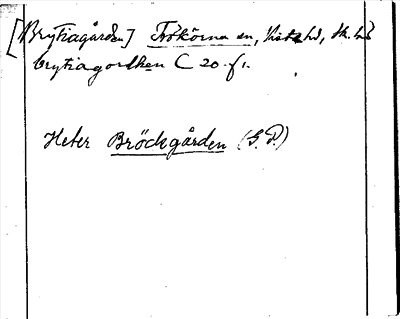 [Brytiagården] Trökörna sn, Viste hd, Sk. bd
brytiagordhen C 20 f 1.
Heter Bröckgården (G.P.)